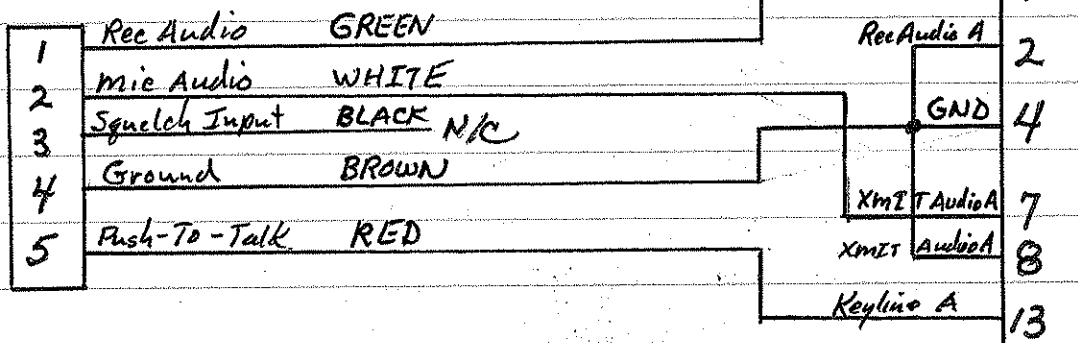 1 Rec Audio GREEN
2 Mic Audio WHITE
3 Squelch Input BLACK N/C
4 Ground BROWN
5 Push-To-Talk RED
Rec Audio A 2
GND 4
XMIT Audio A 7
XMIT Audio A 8
Keyline A 13